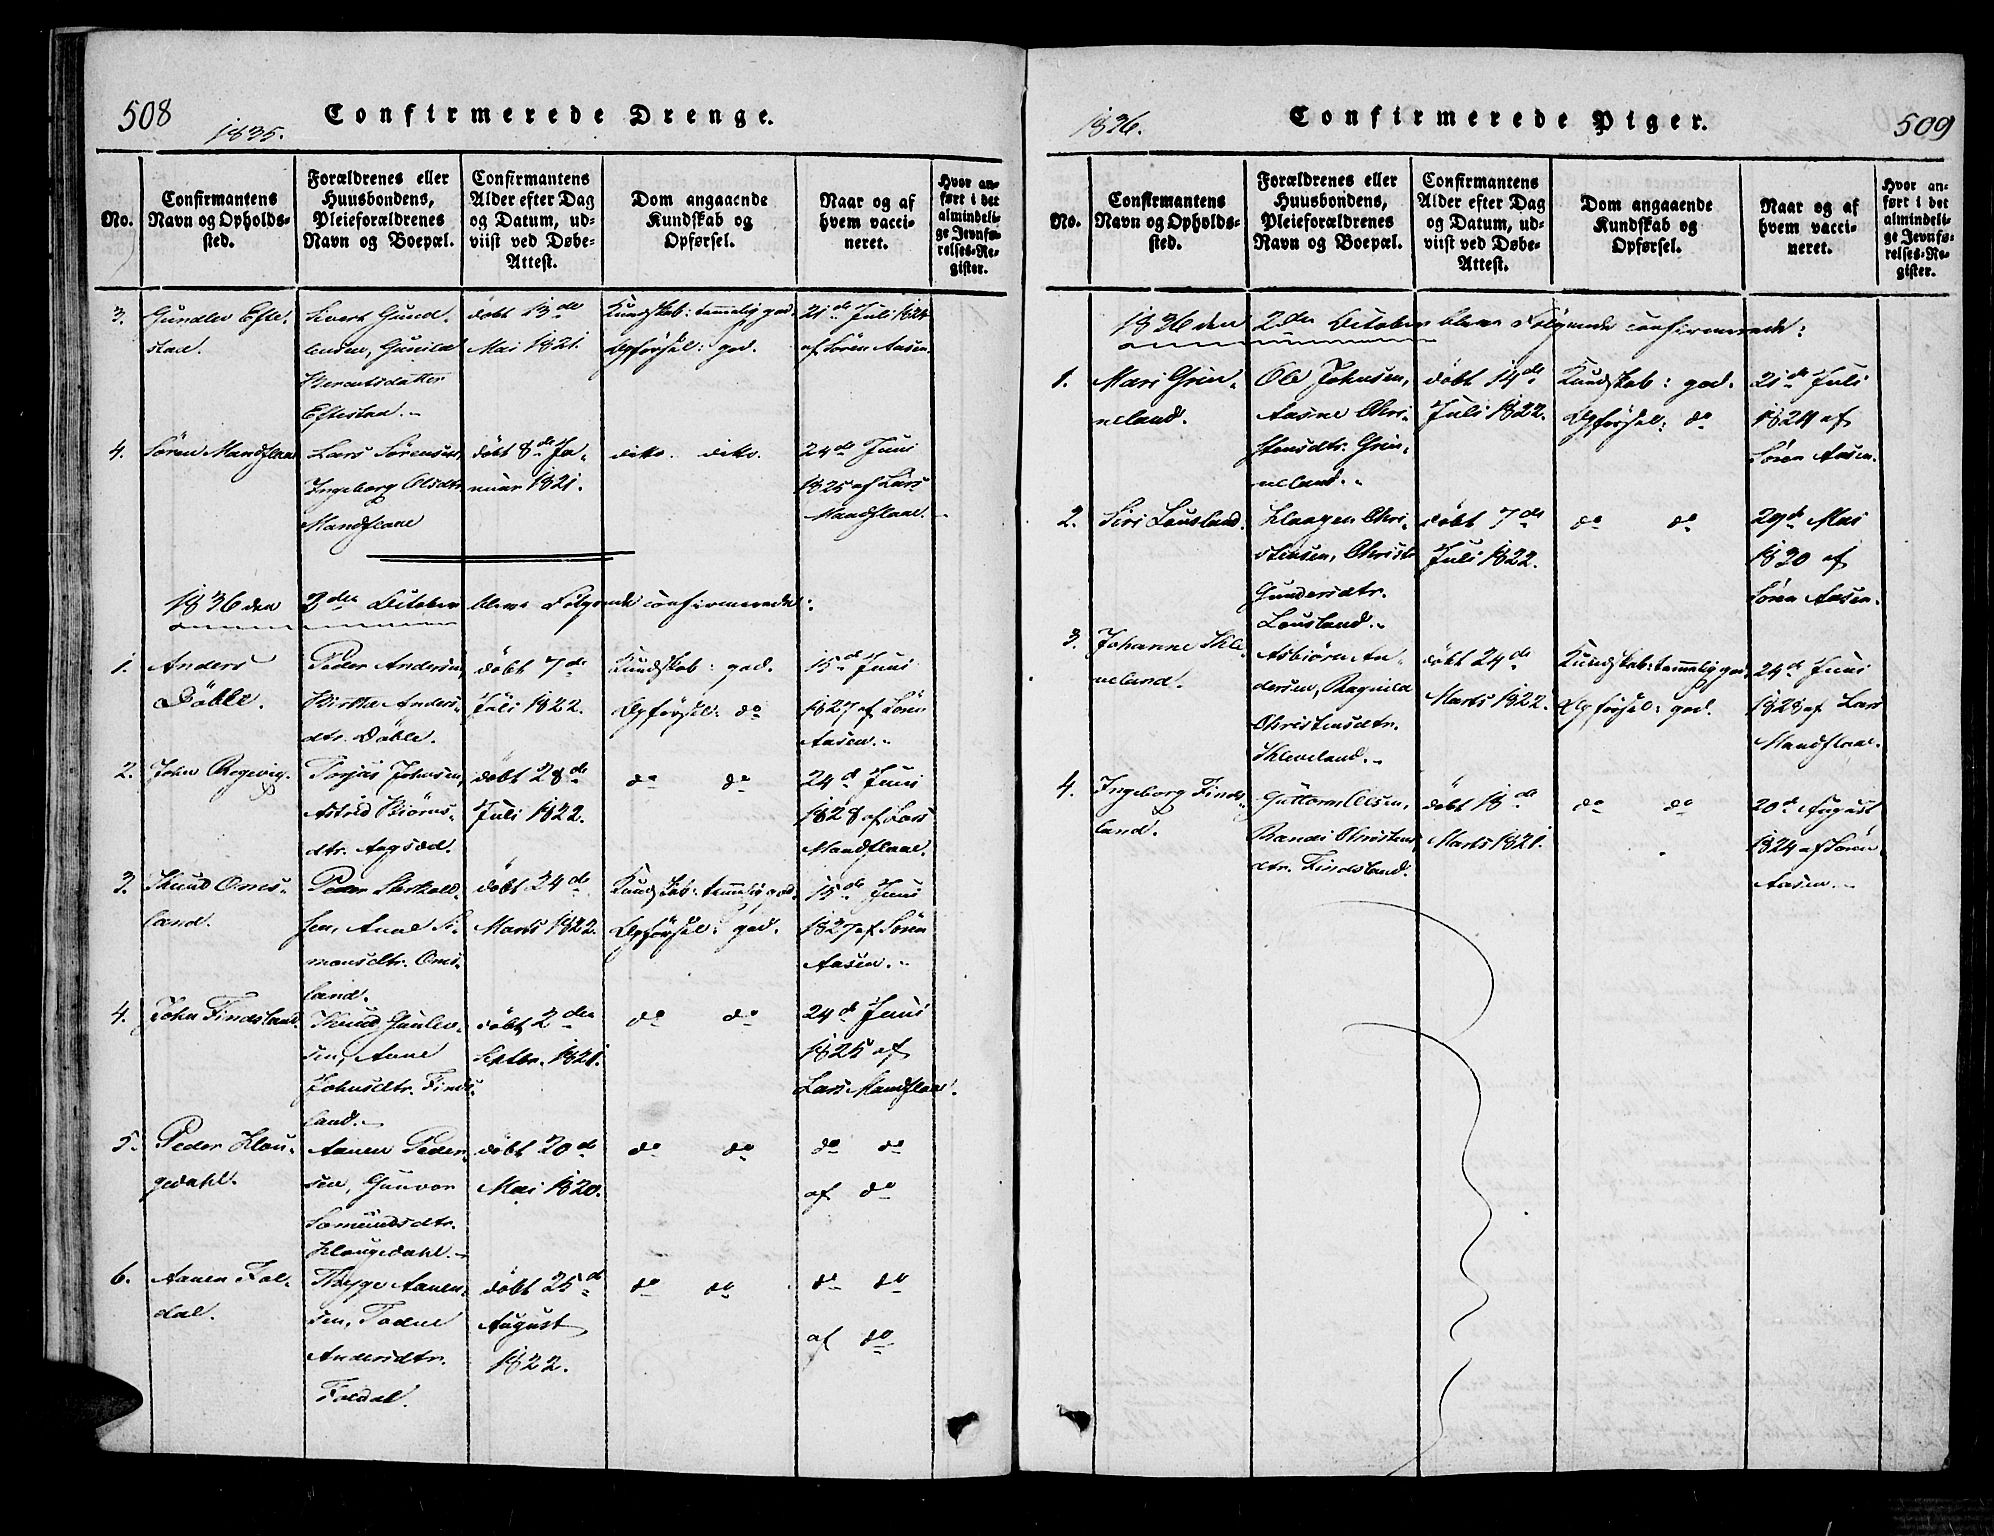 508
Confirmerede Drenge.
1835.
No.
Confirmantens
Navn og Opholds-
sted.
Forældrenes eller
Huusbondens,
Pleieforældrenes
Navn og Boepæl.
Confirmantens
Alder efter Dag
og Datum, ud-
viist ved Døbe-
Attest.
Dom angaaende
Kundskab og
Opførsel.
Naar og af
hvem vacci-
neret.
Hvor an-
ført i det
almindeli-
ge Jevnfø-
relses-Re-
gister.
3.
Gundlev Efte-
stad.
Sivert Gund-
lensen, Gunild
Berentsdatter
Eftestad.
døbt 13de
Mai 1821.
Kundskab: temmelig god.
Opførsel: god.
21de Juli 1824
af Sören Aasen.
4.
Sören Mandflaae
Lars Sörensen,
Ingeborg Olsdtr
Mandflaae
döbt 8de Ja-
nuar 1821.
dito. dito.
24de Juni
1825 af Lars
Mandflaae.
1836 den 2den October bleve Følgende confirmerede:
1.
Anders
Döble.
Peder Andersen,
Birthe Anders-
dtr. Döble.
döbt 7de
Juli 1822.
Kundskab: god.
Opförsel: do
15de Juni
1827 af Sören
Aasen.
2.
John Regevig.
Torjus Johnsen,
Astrid Biörns-
dtr.
döbt 28de
Juli 1822.
do do
24de Juni
1828 af Lars
Mandflaae.
3.
Knud Oms-
land.
Peder
sen, Anne Si-
monsdtr. Oms-
land.
döbt 24de
Marts 1822.
Kundskab: temmelig god
Opförsel: god.
15de Juni
1827 af Sören
Aasen.
4.
John Findsland
Knud Gunlev-
sen, Anne
Johnsdtr. Finds-
land.
döbt 2den
Septbr. 1821.
do do
24de Juni
1825 af
Lars Mandflaae.
5.
Peder Klou-
gedahl.
Aanen Peder-
sen, Gunvor
Samundsdtr.
Klougedahl.
döbt 20de
Mai 1820.
do do
do do
af do
6.
Aanen Fol-
dal.
Thyge Aanen-
sen, Todne
Andersdtr.
Foldal.
döbt 25de
August
1822.
do do
do do
af do
1836.
Confirmerede Piger.
509
No.
Confirmantens
Navn og Opholds-
sted.
Forældrenes eller
Huusbondens,
Pleieforældrenes
Navn og Boepæl.
Confirmantens
Alder efter Dag
og Datum, ud-
viist ved Døbe-
Attest.
Dom angaaende
Kundskab og
Opførsel.
Naar og af
hvem vacci-
neret.
Hvor an-
ført i det
almindeli-
ge Jevnfø-
relses-Re-
gister.
1836 den 2den October bleve Følgende confirmerede:
1.
Mari Grin-
neland.
Ole Johnsen,
Aasne Chri-
stensdtr. Grin-
neland.
döbt 14de
Juli 1822.
Kundskab: god.
Opförsel: do
21de Juli
1824 af
Sören Aasen.
2.
Siri Lousland.
Klaagen Chri-
stensen, Christi
Gundersdtr.
Lousland.
döbt 7de
Juli 1822.
do do
29de Mai
1830 af
Sören Aasen.
3.
Johanne Skle-
neland.
Asbiörn An-
dersen, Ragnild
Christensdtr.
Skleveland.
döbt 24de
Marts 1822.
Kundskab: temmelig god,
Opförsel: god.
24de Juni
1828 af Lars
Mandflaae.
4.
Ingeborg Finds-
land.
Guttorm Olsen,
Randi Christens-
dtr. Findsland.
döbt 18de
Marts 1821.
do do
20de August
1824 af Sören
Aasen.